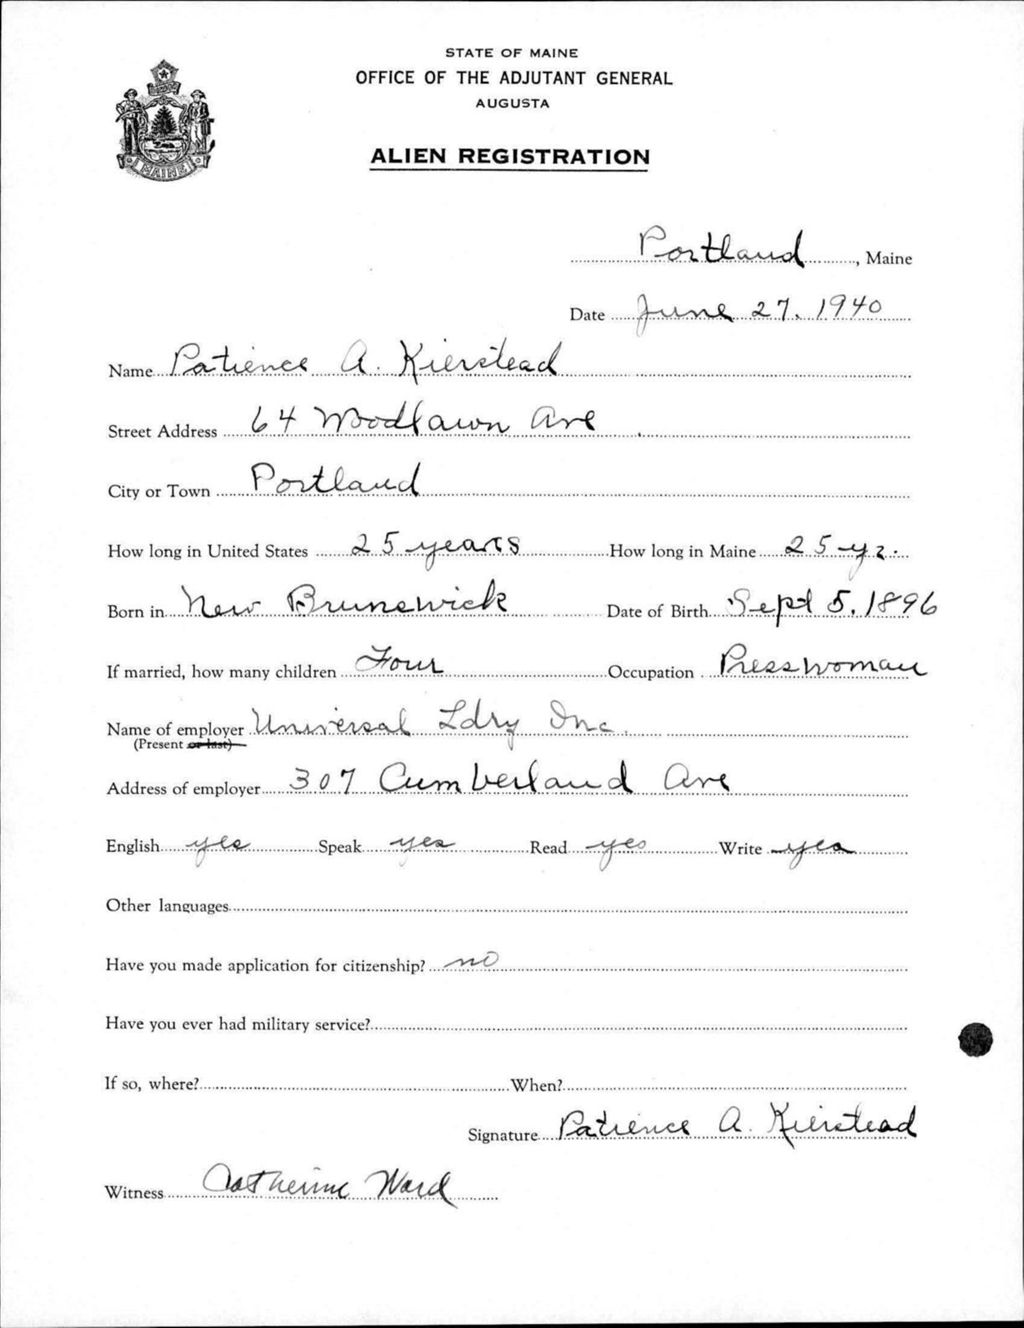 STATE OF MAINE
OFFICE OF THE ADJUTANT GENERAL
AUGUSTA
ALIEN REGISTRATION
MAINE
Portland, Maine
Date June 27, 1940
Name Patience A. Kierstead
Street Address 64 Woodlawn Ave
City or Town Portland
How long in United States 25 years How long in Maine 25 yr.
Born in New Brunswick Date of Birth Sept 5, 1896
If married, how many children Four Occupation Presswoman
Name of employer Universal Ldry Inc.
(Present or last)
Address of employer 307 Cumberland Ave
English yes Speak yes Read yes Write yes
Other languages
Have you made application for citizenship? no
Have you ever had military service?
If so, where? When?
Signature Patience A. Kierstead
Witness Catherine Ward